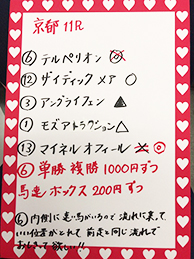 京都 11R
⑥ テルペリオン ◎
⑫ サイティック メア ○
③ アングライフェン ▲
① モズアトラクション △
⑬ マイネル オフィール ○
⑥ 単勝 複勝 1000円ずつ
馬連ボックス 200円ずつ
⑥ 内側に速い馬がいるので流れに乗って、
いい位置がとれて 前走と同じ流れで
欲しい…!!